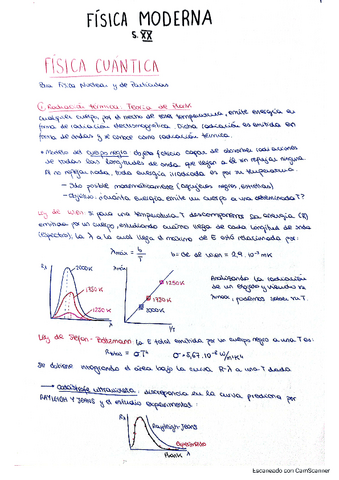 FÍSICA MODERNA
S. XX
FÍSICA CUÁNTICA
Física Nuclear y de Partículas
① Radiación térmica: Teoría de Plank
Cualquier cuerpo, por el hecho de tener temperatura, emite energía en
forma de radiación electromagnética. Dicha radiación es emitida en
forma de ondas y se conoce como radiación térmica.
• Modelo del cuerpo negro: objeto físico capaz de absorber radiaciones
de todas las longitudes de onda que llegan a él sin reflejar ninguna
Al no reflejar nada, toda energía irradiada es por su temperatura.
- Sólo posible matemáticamente (agujeros negros, estrellas)
- Objetivo: ¿cuánta energía emite un cuerpo a una determinada T?
Ley de Wien: si para una temperatura T descomponemos la energía (E)
emitida por un cuerpo, estudiando cuánta llega de cada longitud de onda
(espectro), la λ a la cual llega el máximo de E está relacionada por:
λmáx = b/T
b = cte de Wien = 2,9 · 10⁻³ mK
Rλ
2000K
1750K
1250K
λ
λmáx
1250K
1750K
2000K
1/T
Analizando la radiación
de un objeto y viendo su
λmax, podemos saber su T.
Ley de Stefan-Boltzmann: la E total emitida por un cuerpo negro a una T es:
Rtotal = σT⁴
σ = 5,67 · 10⁻⁸ W/m²K⁴
Se obtiene integrando el área bajo la curva R-λ a una T dada
→ Catástrofe ultravioleta: discrepancia en la curva predicha por
RAYLEIGH Y JEANS y el estudio experimental:
Rλ
Rayleigh-Jeans
Experimento
Plank
λ
Escaneado con CamScanner